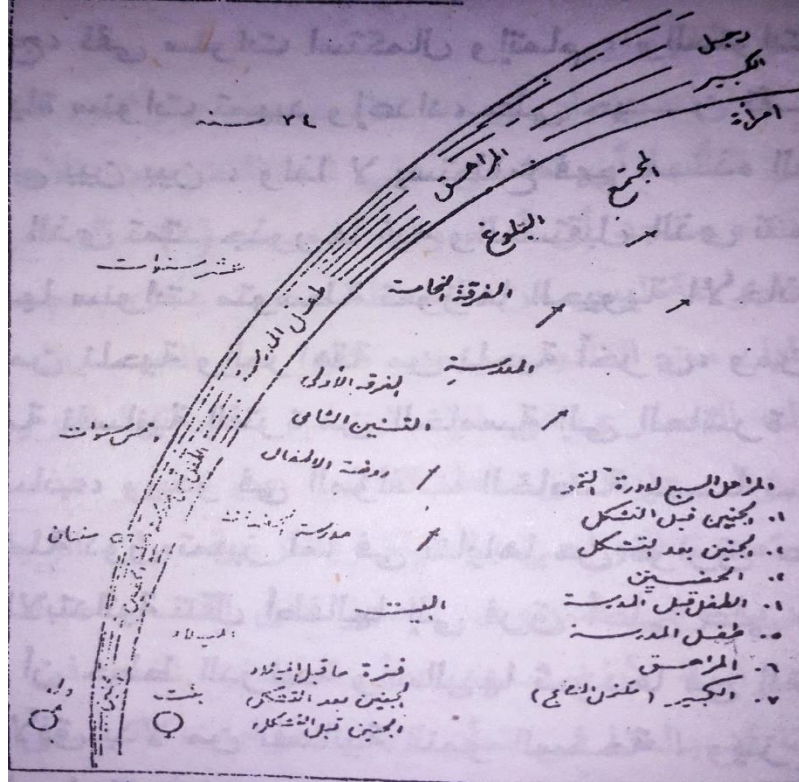 رجل
الكبير
امرأة
٢٤ سنة
المراهق
المجتمع
البلوغ
عشر سنوات
الفرقة الخامسة
طفل المدرسة
المدرسية
الفرقة الأولى
التسنين الثاني
خمس سنوات
روضة الأطفال
سنتان
مدرسة
البيت
الميلاد
فترة ما قبل الميلاد
الجنين بعد التشكل
الجنين قبل التشكل
ولد
بنت
المراحل السبع لدورة النمو
١. الجنين قبل التشكل
٢. الجنين بعد التشكل
٣.
٤. الطفل قبل المدرسة
٥. طفل المدرسة
٦. المراهق
٧. الكبير